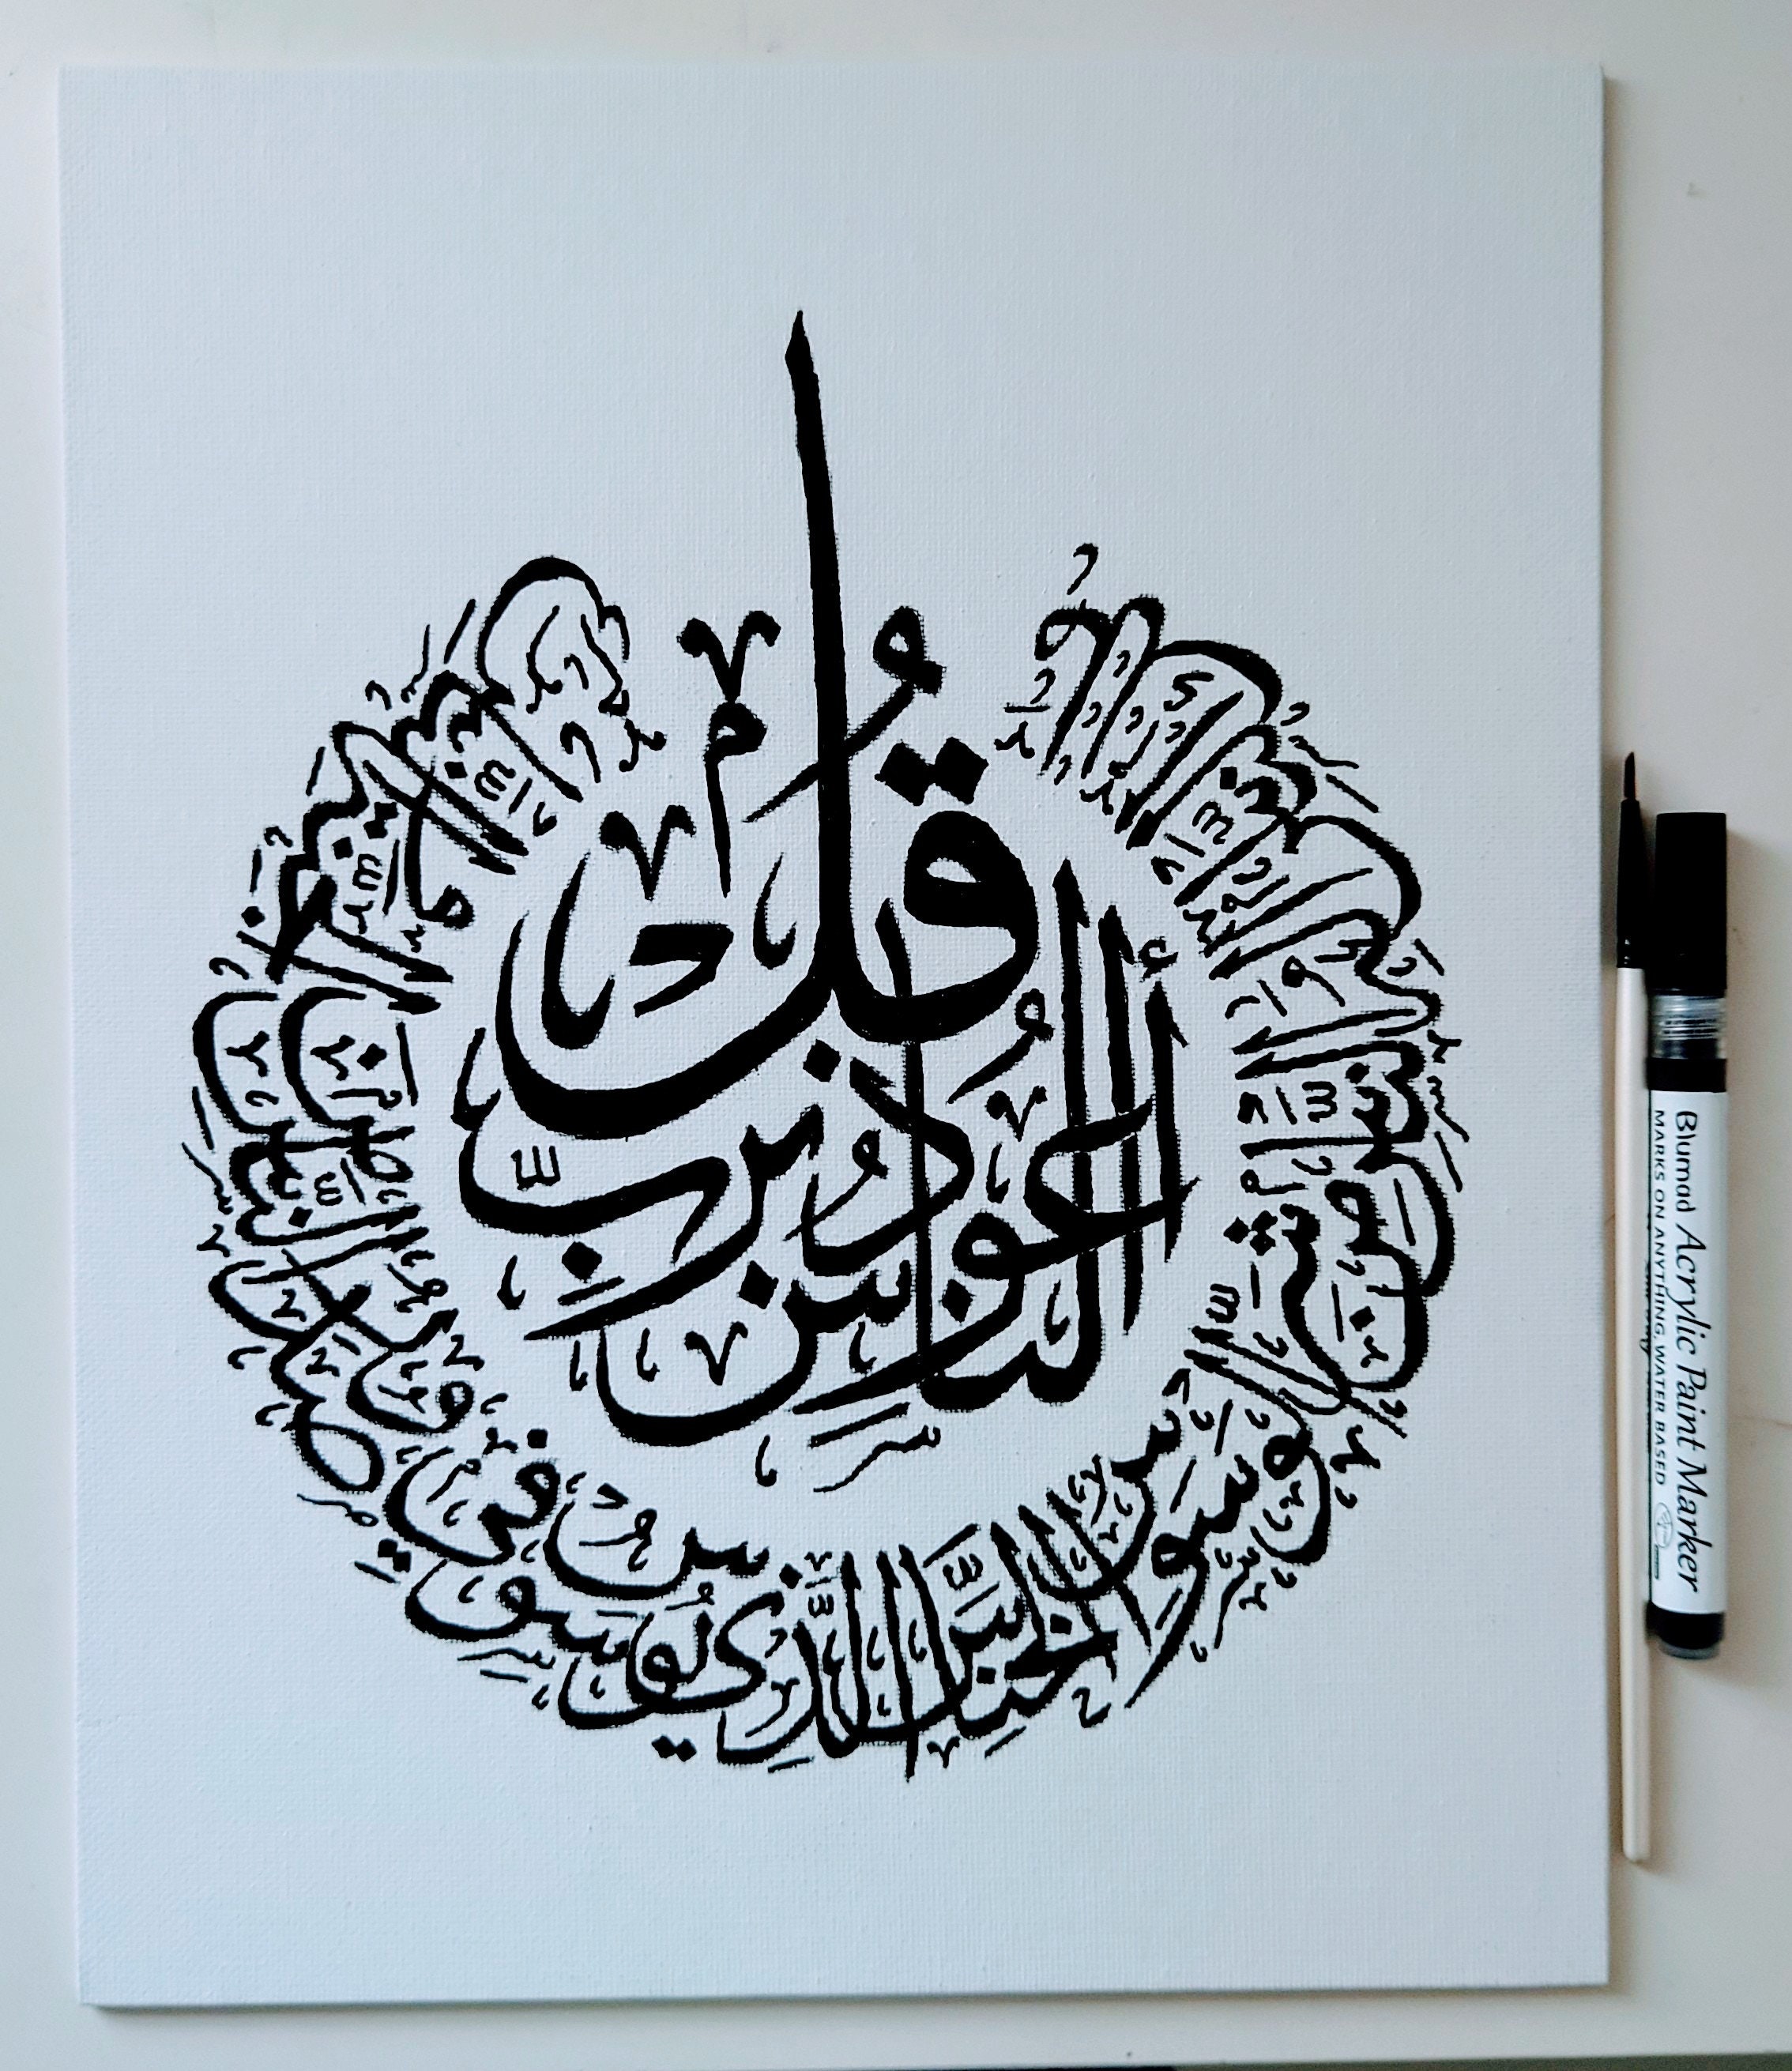 قُلْ أَعُوذُ بِرَبِّ النَّاسِ
مَلِكِ النَّاسِ إِلَهِ النَّاسِ مِنْ شَرِّ الْوَسْوَاسِ الْخَنَّاسِ الَّذِي يُوَسْوِسُ فِي صُدُورِ النَّاسِ مِنَ الْجِنَّةِ وَالنَّاسِ
Blumad Acrylic Paint Marker
MARKS ON ANYTHING, WATER BASED